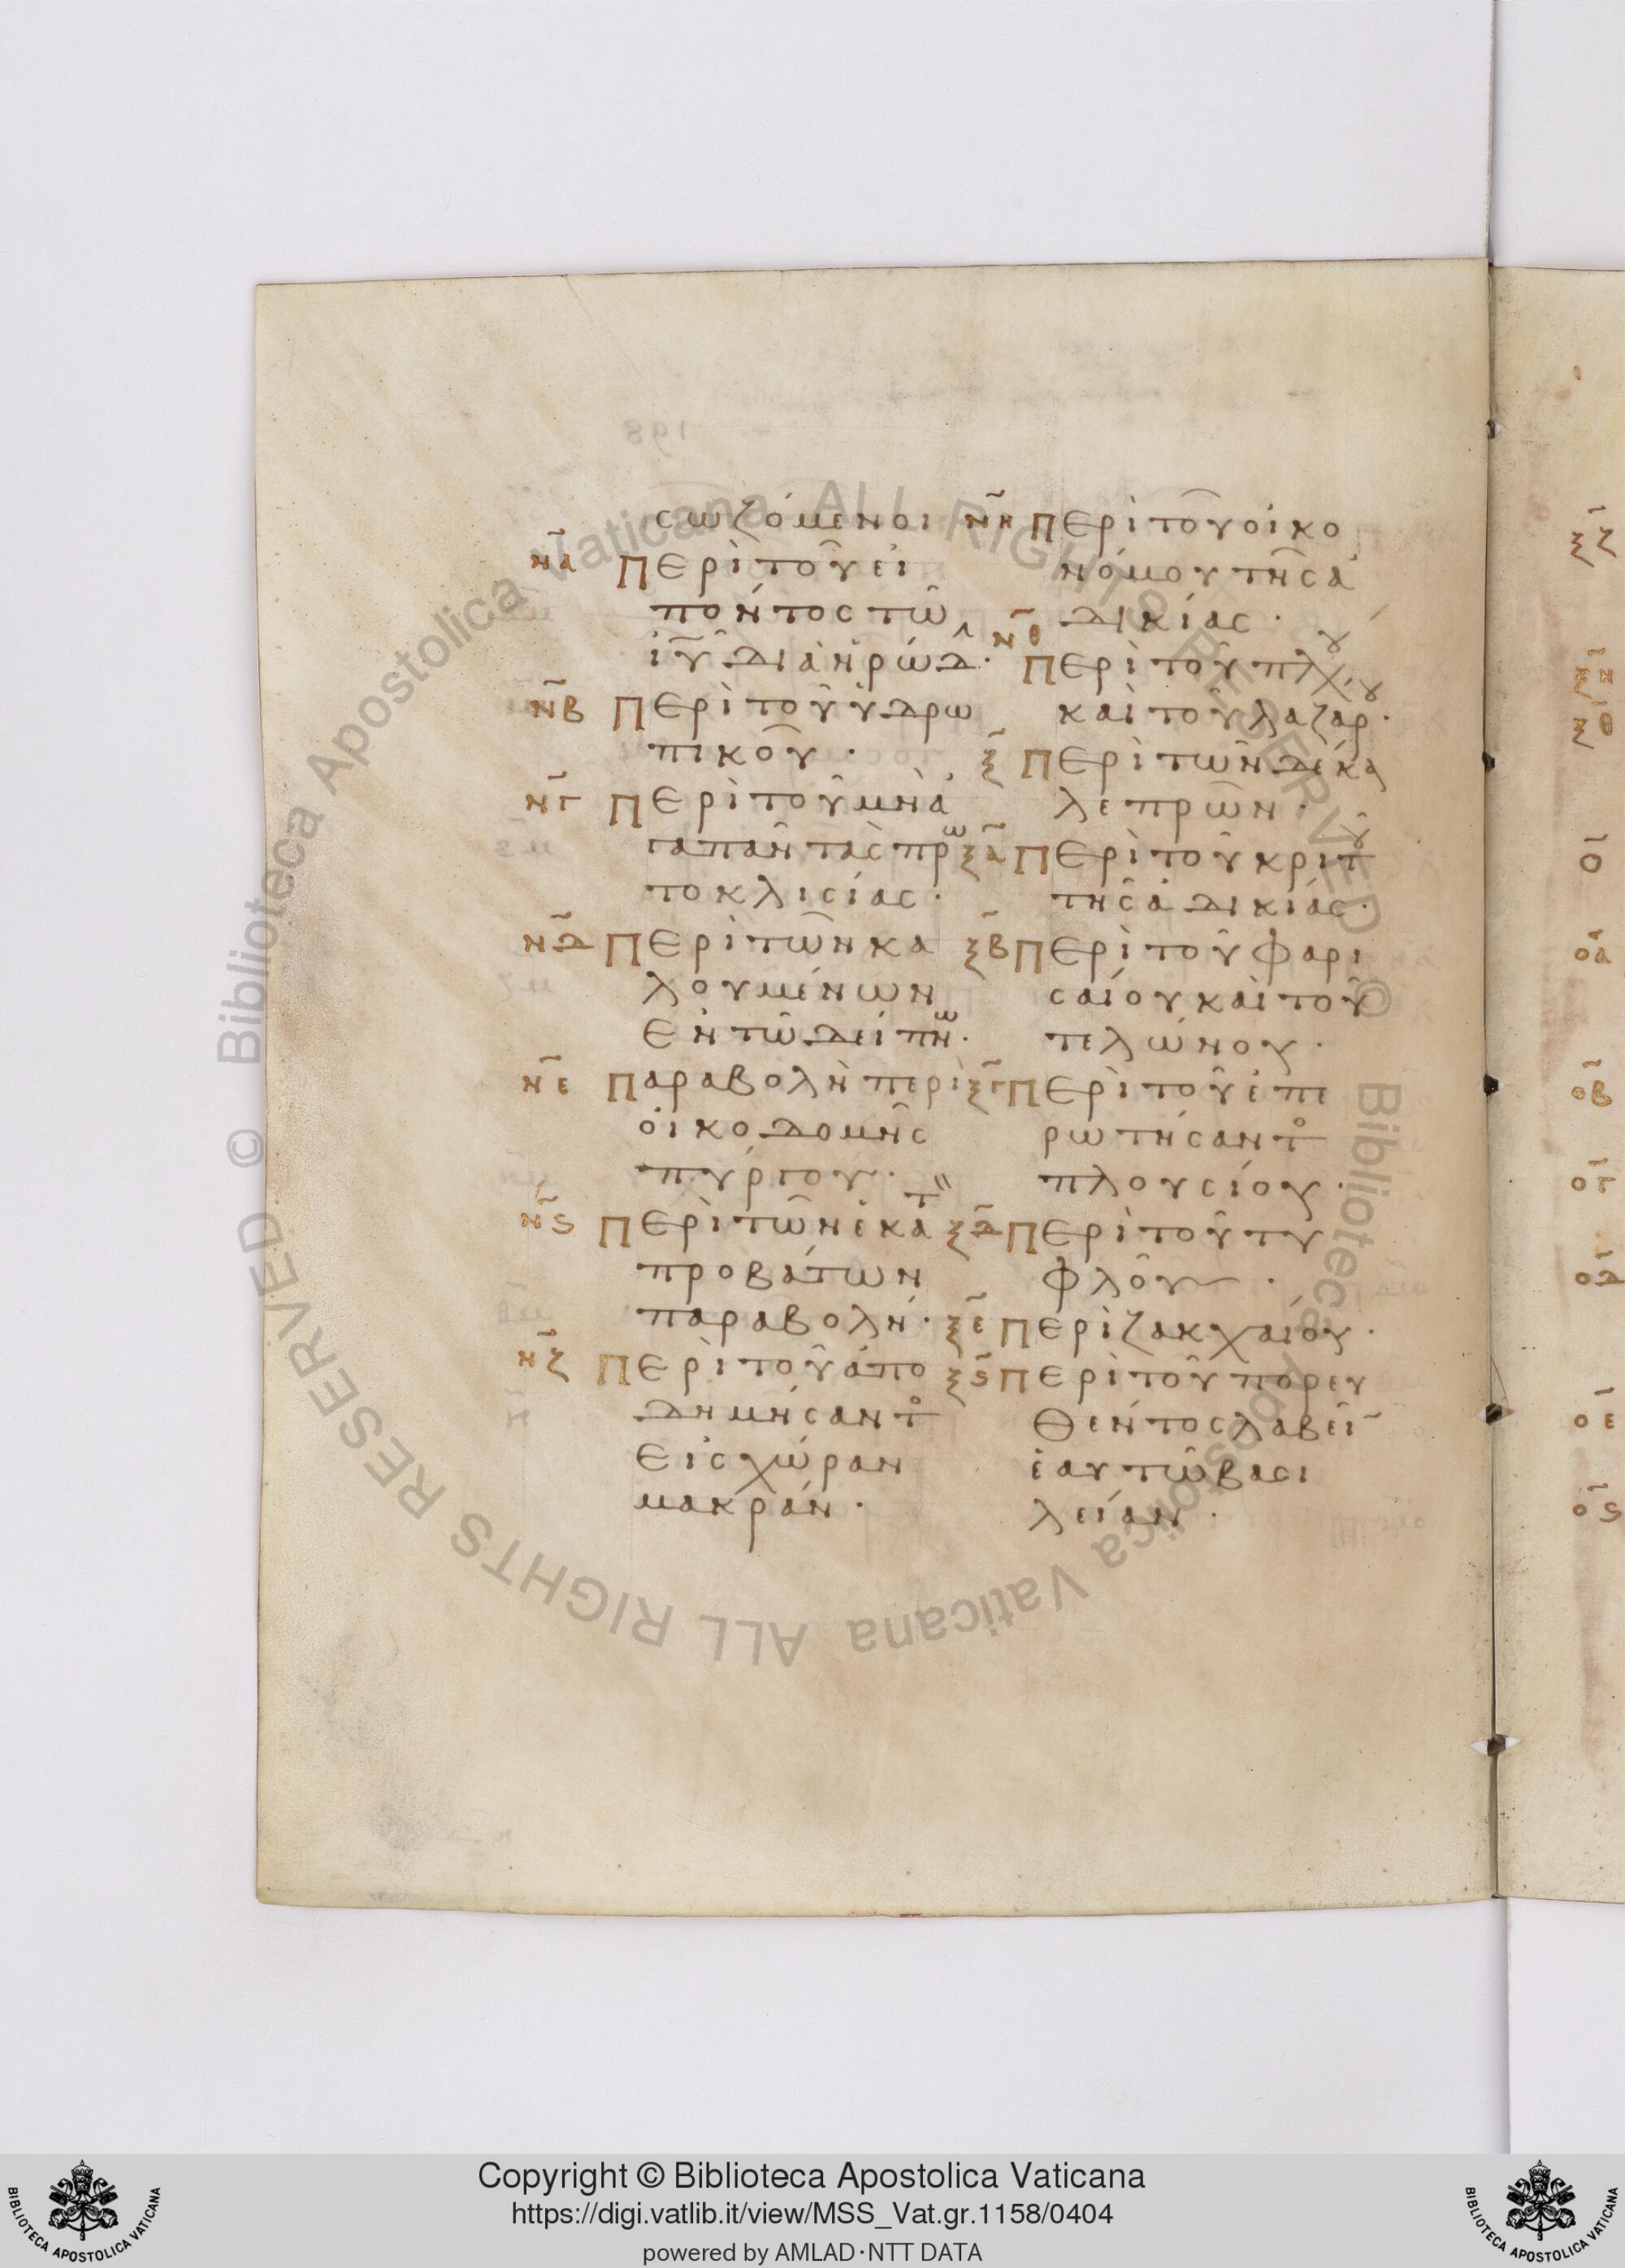 σωζόμενοι
να Περὶ τοῦ εἰ
πόντος τῶ
ἰυ διὰ ἡρώδ·
νβ Περὶ τοῦ ὑδρω
πικοῦ·
νγ Περὶ τοῦ μὴ ἀ
γαπᾶν τὰς πρω
τοκλισίας·
νδ Περὶ τῶν κα
λουμένων
ἐν τῶ δείπνω·
νε Παραβολὴ περὶ
οἰκοδομῆς
πύργου·
νς Περὶ τῶν ἑκατ
προβάτων
παραβολή·
νζ Περὶ τοῦ ἀπο
δημήσαντο
εἰς χώραν
μακράν·
νη Περὶ τοῦ οἰκο
νόμου τῆς ἀ
δικίας·
νθ Περὶ τοῦ πλου
καὶ τοῦ λαζάρου·
ξ Περὶ τῶν δέκα
λεπρῶν·
ξα Περὶ τοῦ κριτοῦ
τῆς ἀδικίας·
ξβ Περὶ τοῦ φαρι
σαίου καὶ τοῦ
τελώνου·
ξγ Περὶ τοῦ ἐπε
ρωτήσαντο
πλουσίου·
ξδ Περὶ τοῦ τυ
φλοῦ·
ξε Περὶ ζακχαίου·
ξς Περὶ τοῦ πορευ
θέντος λαβεῖ
ἑαυτῶ βασι
λείαν·
ξζ
ξη
ξθ
ο
οα
οβ
ογ
οδ
οε
ος
Copyright © Biblioteca Apostolica Vaticana
https://digi.vatlib.it/view/MSS_Vat.gr.1158/0404
powered by AMLAD·NTT DATA
BIBLIOTECA APOSTOLICA VATICANA
BIBLIOTECA APOSTOLICA VATICANA
© Biblioteca Apostolica Vaticana ALL RIGHTS RESERVED © Biblioteca Apostolica Vaticana ALL RIGHTS RESERVED